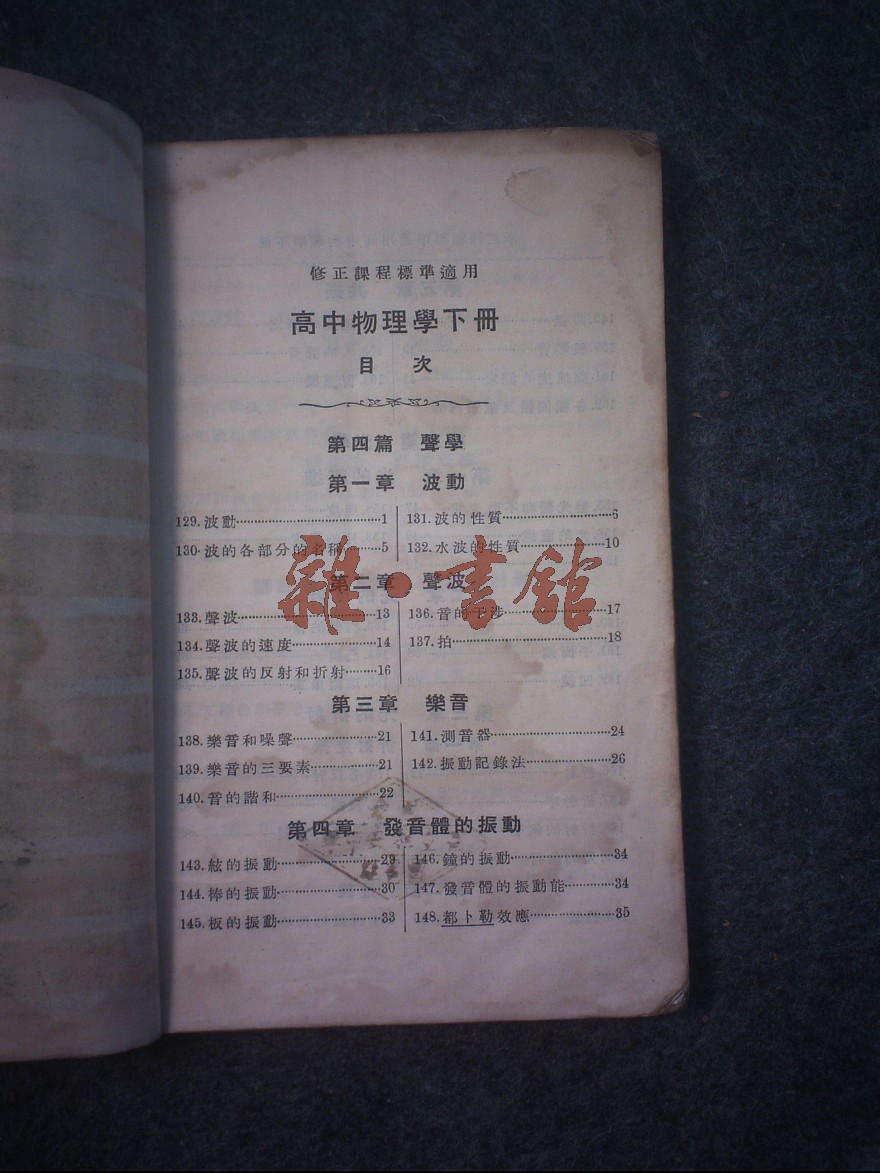 修正課程標準適用
高中物理學下冊
目 次
第四篇 聲學
第一章 波動
129.波動……1
130.波的各部分的名稱……5
131.波的性質……6
132.水波的性質……10
第二章 聲波
133.聲波……13
134.聲波的速度……14
135.聲波的反射和折射……16
136.音的干涉……17
137.拍……18
雜·書館
第三章 樂音
138.樂音和噪聲……21
139.樂音的三要素……21
140.音的諧和……22
141.測音器……24
142.振動記錄法……26
第四章 發音體的振動
143.絃的振動……29
144.棒的振動……30
145.板的振動……33
146.鐘的振動……34
147.發音體的振動能……34
148.都卜勒效應……35